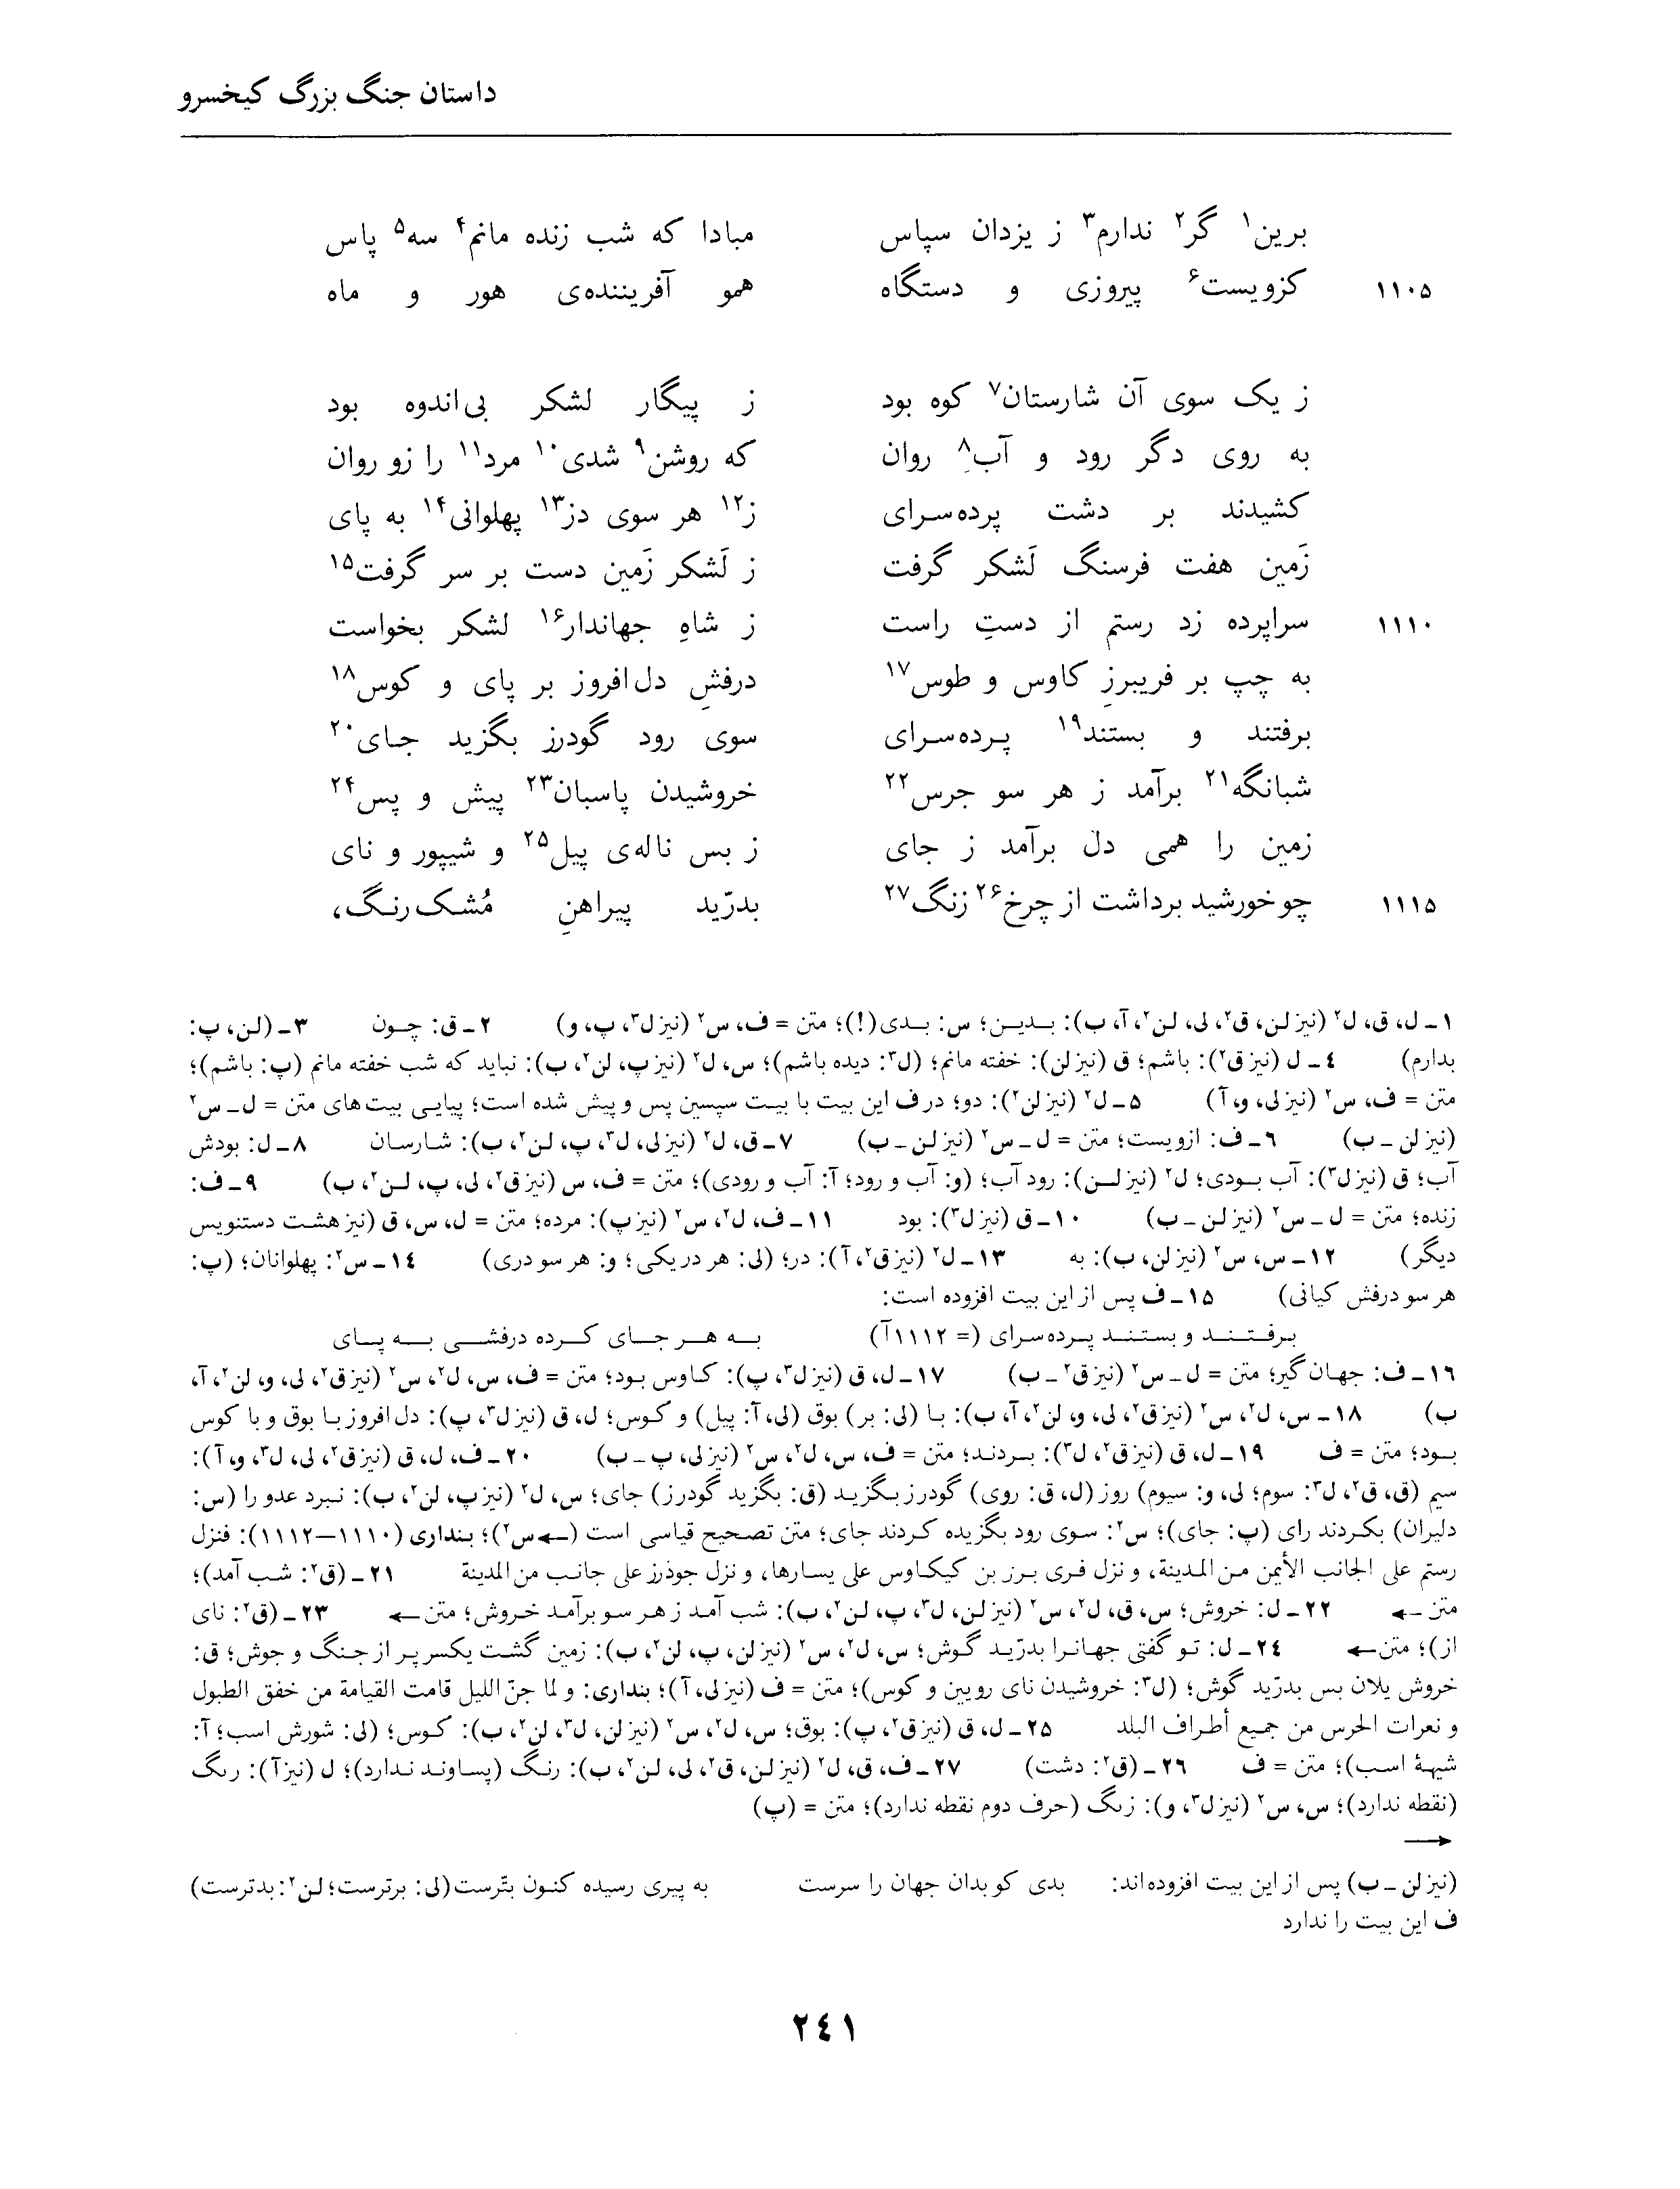 داستان جنگ بزرگ کیخسرو
برین۱ گر۲ ندارم۳ ز یزدان سپاس مبادا که شب زنده مانم۴ سه۵ پاس
۱۱۰۵ کزویست۶ پیروزی و دستگاه همو آفریننده‌ی هور و ماه
ز یک سوی آن شارستان۷ کوه بود ز پیگار لشکر بی‌اندوه بود
به روی دگر رود و آبِ۸ روان که روشن۹ شدی۱۰ مرد۱۱ را زو روان
کشیدند بر دشت پرده‌سرای ز۱۲ هر سوی دز۱۳ پهلوانی۱۴ به پای
زَمین هفت فرسنگ لَشکر گرفت ز لَشکر زَمین دست بر سر گرفت۱۵
۱۱۱۰ سراپرده زد رستم از دستِ راست ز شاهِ جهاندار۱۶ لشکر بخواست
به چپ بر فریبرزِ کاوس و طوس۱۷ درفشِ دل‌افروز بر پای و کوس۱۸
برفتند و بستند۱۹ پرده‌سرای سوی رود گودرز بگزید جای۲۰
شبانگه۲۱ برآمد ز هر سو جرس۲۲ خروشیدن پاسبان۲۳ پیش و پس۲۴
زمین را همی دل برآمد ز جای ز بس ناله‌ی پیل۲۵ و شیپور و نای
۱۱۱۵ چو خورشید برداشت از چرخ۲۶ زنگ۲۷ بدرّید پیراهنِ مُشک‌رنگ،
۱ـ ل، ق، ل۲ (نیز لن، ق۲، لی، لن۲، آ، ب): بدیـن؛ س: بـدی(!)؛ متن = ف، س۲ (نیز ل۳، پ، و) ۲ـ ق: چـون ۳ـ (لن، پ:
بدارم) ٤ـ ل (نیز ق۲): باشم؛ ق (نیز لن): خفته مانم؛ (ل۳: دیده باشم)؛ س، ل۲ (نیز پ، لن۲، ب): نباید که شب خفته مانم (پ: باشم)؛
متن = ف، س۲ (نیز لی، و، آ) ۵ـ ل۲ (نیز لن۲): دو؛ در ف این بیت با بیت سپسین پس و پیش شده است؛ پیاپی بیت‌های متن = ل ـ س۲
(نیز لن ـ ب) ۶ـ ف: ازویست؛ متن = ل ـ س۲ (نیز لن ـ ب) ۷ـ ق، ل۲ (نیز لی، ل۳، پ، لن۲، ب): شارسان ۸ـ ل: بودش
آب؛ ق (نیز ل۳): آب بـودی؛ ل۲ (نیز لـن): رود آب؛ (و: آب و رود؛ آ: آب و رودی)؛ متن = ف، س (نیز ق۲، لی، پ، لـن۲، ب) ۹ـ ف:
زنده؛ متن = ل ـ س۲ (نیز لن ـ ب) ۱۰ـ ق (نیز ل۳): بود ۱۱ـ ف، ل۲، س۲ (نیز پ): مرده؛ متن = ل، س، ق (نیز هشت دستنویس
دیگر) ۱۲ـ س، س۲ (نیز لن، ب): به ۱۳ـ ل۲ (نیز ق۲، آ): در؛ (لی: هر در یکی؛ و: هر سو دری) ۱٤ـ س۲: پهلوانان؛ (پ:
هر سو درفش کیانی) ۱۵ـ ف پس از این بیت افزوده است:
برفـتـنـد و بستـنـد پـرده‌سرای (= ۱۱۱۲آ) بـه هـر جـای کـرده درفشـی بـه پـای
۱۶ـ ف: جهان گیر؛ متن = ل ـ س۲ (نیز ق۲ ـ ب) ۱۷ـ ل، ق (نیز ل۳، پ): کـاوس بـود؛ متن = ف، س، ل۲، س۲ (نیز ق۲، لی، و، لن۲، آ،
ب) ۱۸ـ س، ل۲، س۲ (نیز ق۲، لی، و، لن۲، آ، ب): بـا (لی: بر) بوق (لی، آ: پیل) و کـوس؛ ل، ق (نیز ل۳، پ): دل افروز بـا بوق و با کوس
بـود؛ متن = ف ۱۹ـ ل، ق (نیز ق۲، ل۳): بـردنـد؛ متن = ف، س، ل۲، س۲ (نیز لی، پ ـ ب) ۲۰ـ ف، ل، ق (نیز ق۲، لی، ل۳، و، آ):
سیم (ق، ق۲، ل۳: سوم؛ لی، و: سیوم) روز (ل، ق: روی) گودرز بـگزیـد (ق: بگزید گودرز) جای؛ س، ل۲ (نیز پ، لن۲، ب): نـبرد عدو را (س:
دلیران) بکـردند رای (پ: جای)؛ س۲: سوی رود بگزیده کـردند جای؛ متن تصحیح قیاسی است (←س۲)؛ بنداری (۱۱۱۰–۱۱۱۲): فنزل
رستم علی الجانب الأیمن مـن المـدینة، و نزل فـری بـرز بن کیکـاوس علی یسارها، و نزل جوذرز علی جانب من المدینة ۲۱ـ (ق۲: شب آمد)؛
متن ← ۲۲ـ ل: خروش؛ س، ق، ل۲، س۲ (نیز لن، ل۳، پ، لن۲، ب): شب آمـد ز هـر سـو برآمـد خـروش؛ متن ← ۲۳ـ (ق۲: نای
از)؛ متن ← ۲٤ـ ل: تـو گفتی جهـانـرا بدرّیـد گـوش؛ س، ل۲، س۲ (نیز لن، پ، لن۲، ب): زمین گشت یکسر پـر از جـنگ و جوش؛ ق:
خروش یلان بس بدرّید گوش؛ (ل۳: خروشیدن نای رویین و کوس)؛ متن = ف (نیز لی، آ)؛ بنداری: و لما جنّ اللیل قامت القیامة من خفق الطبول
و نعرات الحرس من جمیع أطراف البلد ۲۵ـ ل، ق (نیز ق۲، پ): بوق؛ س، ل۲، س۲ (نیز لن، ل۳، لن۲، ب): کـوس؛ (لی: شورش اسب؛ آ:
شیهۀ اسب)؛ متن = ف ۲۶ـ (ق۲: دشت) ۲۷ـ ف، ق، ل۲ (نیز لـن، ق۲، لی، لـن۲، ب): رنـگ (پساونـد نـدارد)؛ ل (نیز آ): رٮگ
(نقطه ندارد)؛ س، س۲ (نیز ل۳، و): زٮگ (حرف دوم نقطه ندارد)؛ متن = (پ)
→
(نیز لن ـ ب) پس از این بیت افزوده‌اند: بدی کو بدان جهان را سرست به پیری رسیده کنـون بتّرست (لی: برترست؛ لـن۲: بدترست)
ف این بیت را ندارد
۲٤۱